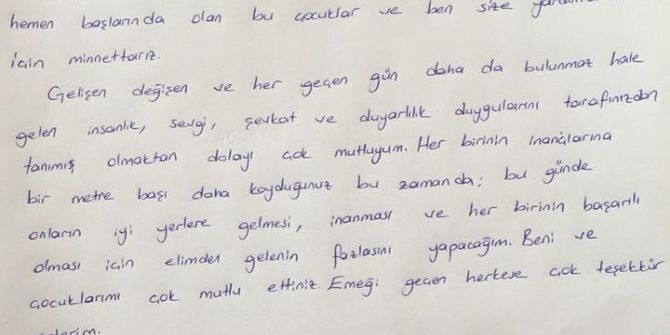 hemen başlarında olan bu çocuklar ve ben size
için minnettarız.
Gelişen değişen ve her geçen gün daha da bulunmaz hale
gelen insanlık, sevgi, şevkat ve duyarlılık duygularını tarafınızdan
tanımış olmaktan dolayı çok mutluyum. Her birinin inançlarına
bir metre başı daha koyduğunuz bu zamanda; bu günde
onların iyi yerlere gelmesi, inanması ve her birinin başarılı
olması için elimden gelenin fazlasını yapacağım. Beni ve
çocuklarımı çok mutlu ettiniz. Emeği geçen herkese çok teşekkür